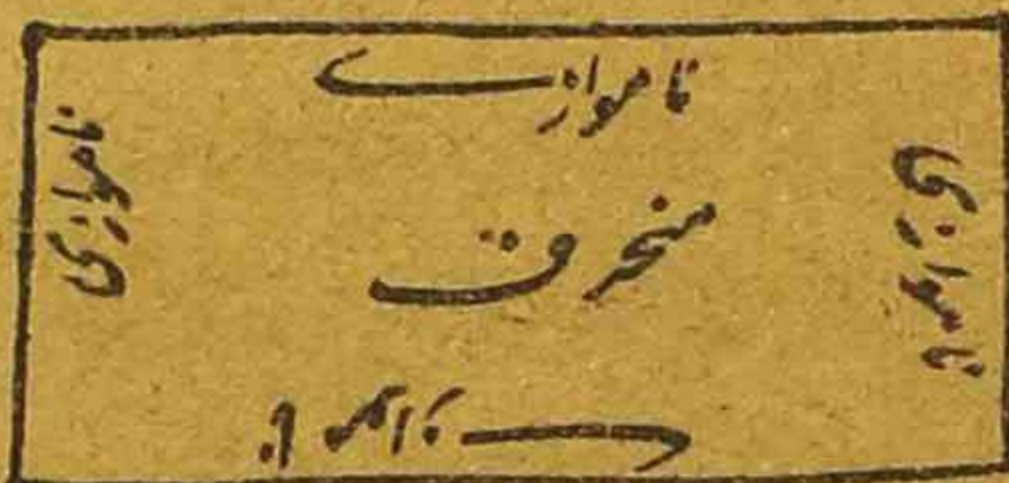 نا موازے
ناموازی
منحرف
ناموازی
نا موازے